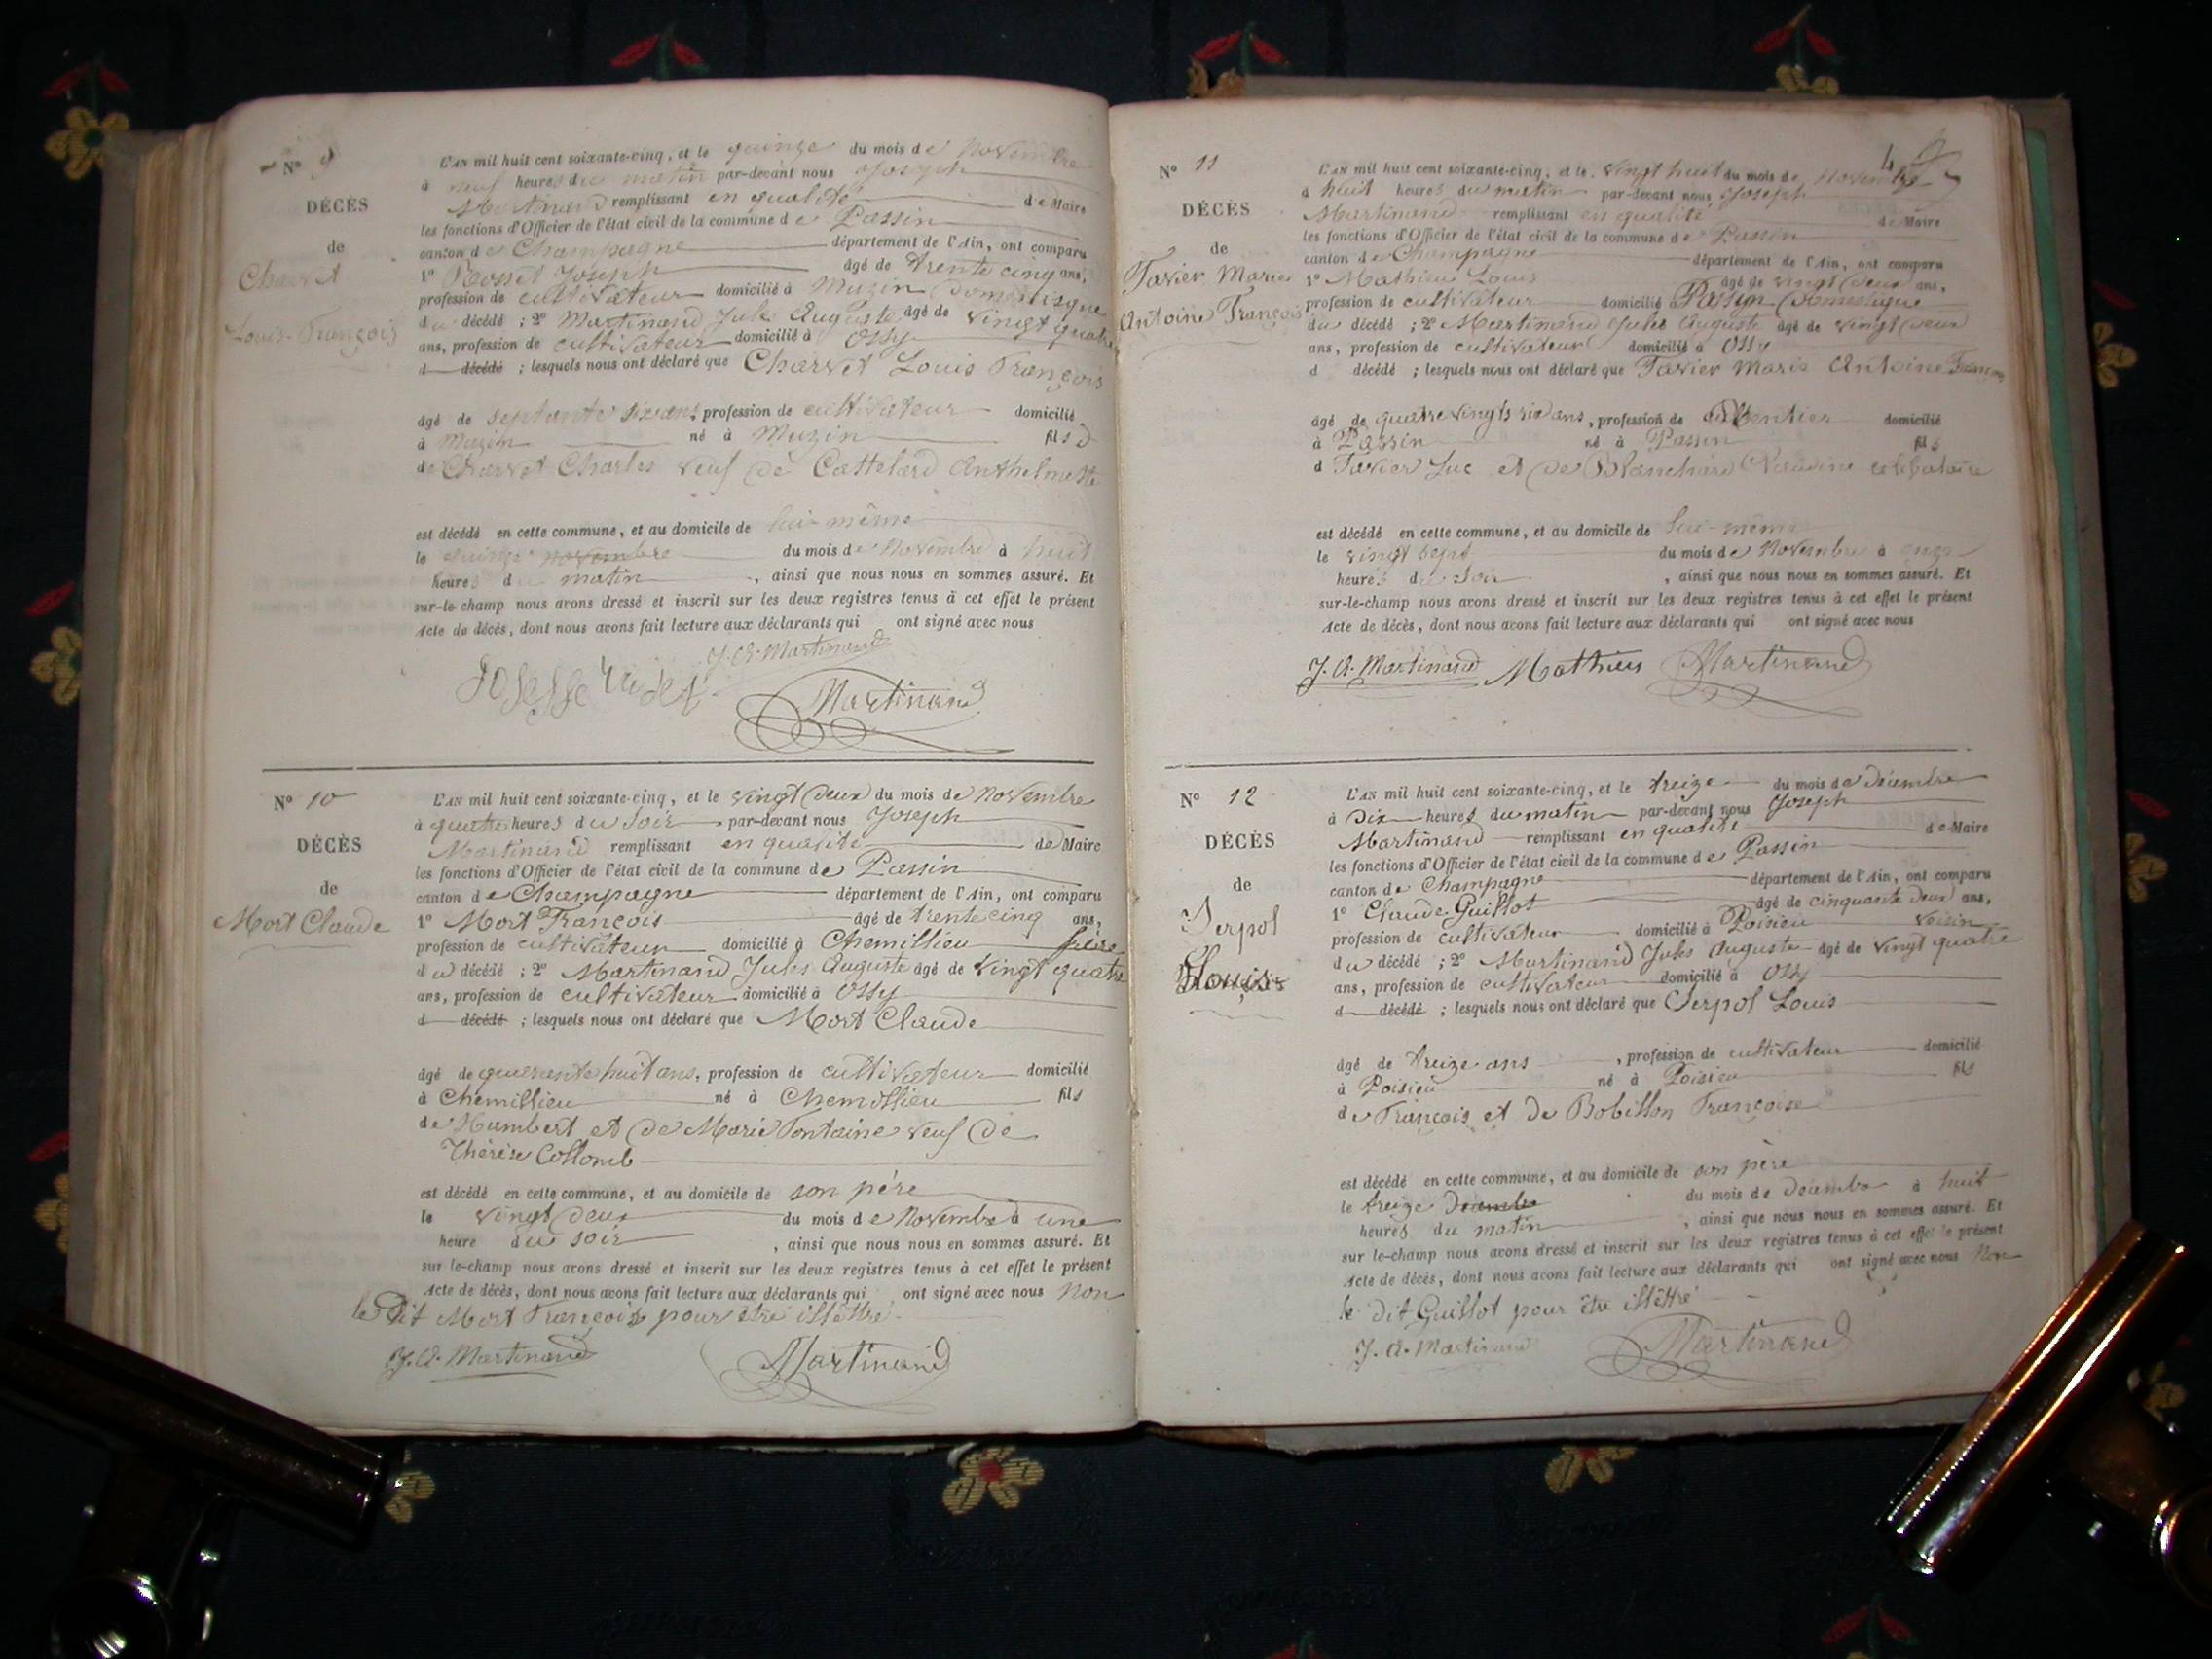 N° 9
DÉCÈS
de
Charvet
Louis-François
L'AN mil huit cent soixante-cinq, et le quinze du mois de Novembre
à neuf heures du matin par-devant nous Joseph
Martinand remplissant en qualité de Maire
les fonctions d'Officier de l'état civil de la commune de Passin
canton de Champagne département de l'Ain, ont comparu
1° Rosset Joseph âgé de trente cinq ans,
profession de cultivateur domicilié à Muzin domestique
du décédé ; 2° Martinand Jules Auguste âgé de vingt quatre
ans, profession de cultivateur domicilié à Ossy
d décédé ; lesquels nous ont déclaré que Charvet Louis François
âgé de septante six ans, profession de cultivateur domicilié
à Muzin né à Muzin fils d
de Charvet Charles veuf de Cattelard Anthelmette
est décédé en cette commune, et au domicile de lui-même
le quinze novembre du mois de Novembre à huit
heures du matin , ainsi que nous nous en sommes assuré. Et
sur-le-champ nous avons dressé et inscrit sur les deux registres tenus à cet effet le présent
Acte de décès, dont nous avons fait lecture aux déclarants qui ont signé avec nous
J. A. Martinand
Martinand
N° 10
DÉCÈS
de
Mort Claude
L'AN mil huit cent soixante-cinq, et le vingt deux du mois de Novembre
à quatre heures du soir par-devant nous Joseph
Martinand remplissant en qualité de Maire
les fonctions d'Officier de l'état civil de la commune de Passin
canton de Champagne département de l'Ain, ont comparu
1° Mort François âgé de trente cinq ans,
profession de cultivateur domicilié à Chemillieu frère
du décédé ; 2° Martinand Jules Auguste âgé de vingt quatre
ans, profession de cultivateur domicilié à Ossy
d décédé ; lesquels nous ont déclaré que Mort Claude
âgé de quarante huit ans, profession de cultivateur domicilié
à Chemillieu né à Chemillieu fils
de Humbert et de Marie Fontaine veuf de
Thérèse Collomb
est décédé en cette commune, et au domicile de son père
le vingt deux du mois de Novembre à une
heure du soir , ainsi que nous nous en sommes assuré. Et
sur le-champ nous avons dressé et inscrit sur les deux registres tenus à cet effet le présent
Acte de décès, dont nous avons fait lecture aux déclarants qui ont signé avec nous Non
le dit Mort François pour être illettré
J. A. Martinand Martinand
4
N° 11
DÉCÈS
de
Tavier Marie
Antoine François
L'AN mil huit cent soixante-cinq, et le vingt huit du mois de Novembre
à huit heures du matin par-devant nous Joseph
Martinand remplissant en qualité de Maire
les fonctions d'Officier de l'état civil de la commune de Passin
canton de Champagne département de l'Ain, ont comparu
1° Mathieu Louis âgé de vingt deux ans,
profession de cultivateur domicilié Passin domestique
du décédé ; 2° Martinand Jules Auguste âgé de vingt deux
ans, profession de cultivateur domicilié à Ossy
d décédé ; lesquels nous ont déclaré que Tavier Marie Antoine François
âgé de quatre vingts six ans, profession de Rentier domicilié
à Passin né à Passin fils
d Tavier Luc et de Blanchard Claudine celibataire
est décédé en cette commune, et au domicile de lui-même
le vingt sept du mois de Novembre à onze
heures du soir , ainsi que nous nous en sommes assuré. Et
sur-le-champ nous avons dressé et inscrit sur les deux registres tenus à cet effet le présent
Acte de décès, dont nous avons fait lecture aux déclarants qui ont signé avec nous
J. A. Martinand Mathieu Martinand
N° 12
DÉCÈS
de
Serpol
Louis
L'AN mil huit cent soixante-cinq, et le treize du mois de Décembre
à Dix heures du matin par-devant nous Joseph
Martinand remplissant en qualité de Maire
les fonctions d'Officier de l'état civil de la commune de Passin
canton de Champagne département de l'Ain, ont comparu
1° Claude Guillot âgé de cinquante deux ans,
profession de cultivateur domicilié à Poisieu voisin
du décédé ; 2° Martinand Jules Auguste âgé de vingt quatre
ans, profession de cultivateur domicilié à Ossy
d décédé ; lesquels nous ont déclaré que Serpol Louis
âgé de treize ans , profession de cultivateur domicilié
à Poisieu né à Poisieu fils
de François et de Bobillon Françoise
est décédé en cette commune, et au domicile de son père
le treize Décembre du mois de Décembre à huit
heures du matin , ainsi que nous nous en sommes assuré. Et
sur le-champ nous avons dressé et inscrit sur les deux registres tenus à cet effet le présent
Acte de décès, dont nous avons fait lecture aux déclarants qui ont signé avec nous Non
le dit Guillot pour être illettré
J. A. Martinand Martinand